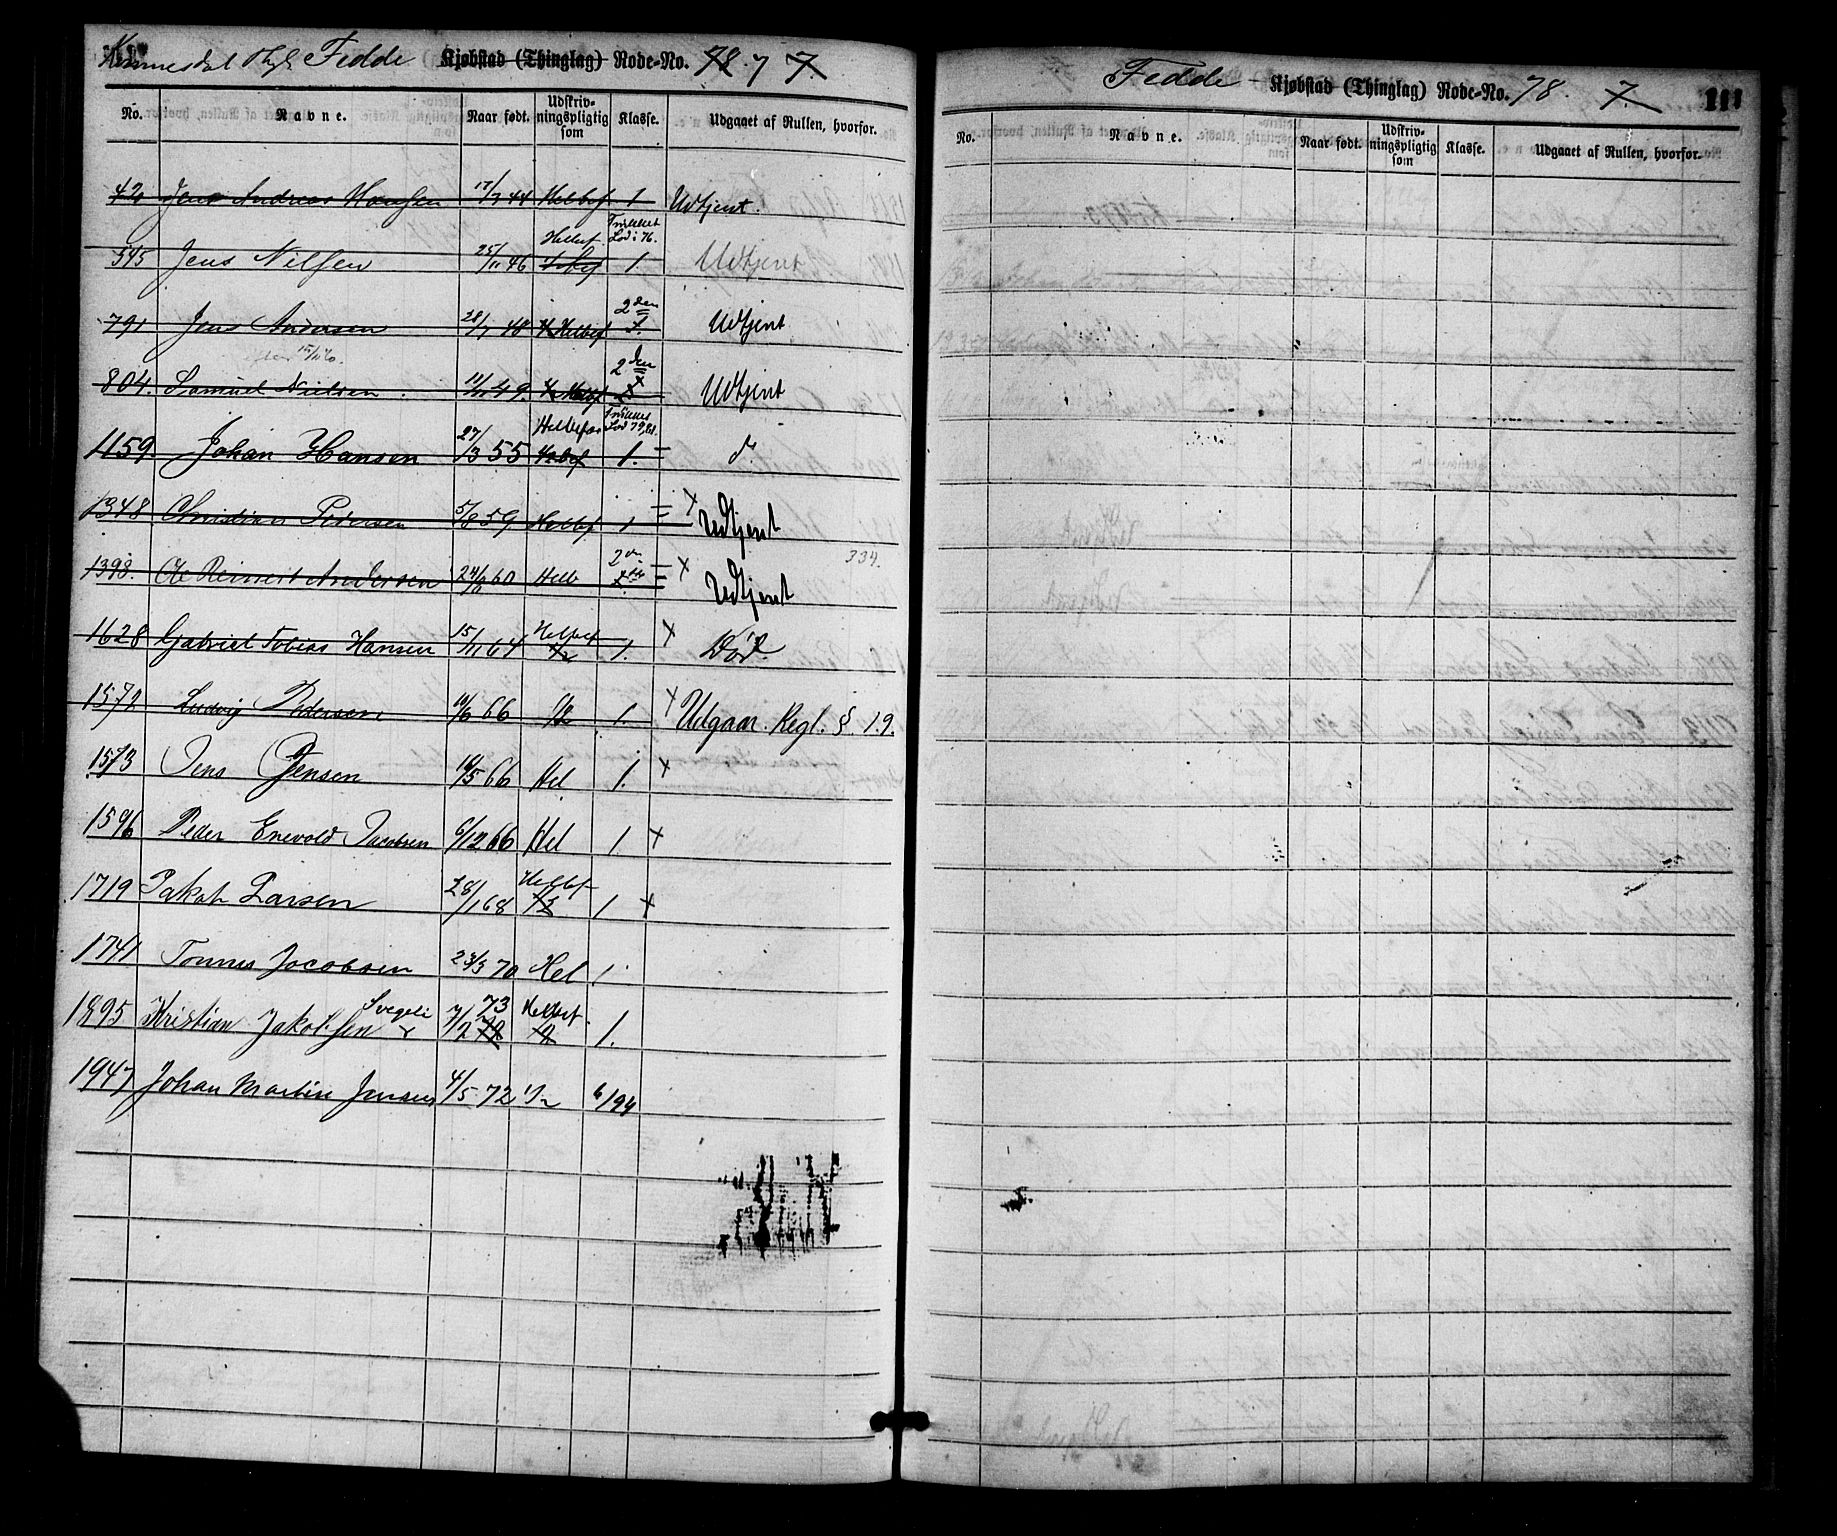 Fedde Kjøbstad (Thinglag) Rode-No. 78. 7 7.
No. Navne. Naar født. Udskriv-ningspligtig som Klasse. Udgaaet af Rullen, hvorfor.
42 Jens Andreas Hansen 17/7 44 Helbef 1 Udtjent.
Trukket Lod i 76.
545 Jens Nilsen 25/11 46 Helbef. ½bef 1. Udtjent
791 Jens Andersen 28/1 48 ½ Helbef 2den 1. Udtjent
efter
804. Samuel Nielsen. 11/1 49. ½ Helbef 2den Udtjent
1159. Johan Hansen 27/3 55 Helbefar ½bef Trukket Lod 79 1.
1348 Christian Pedersen 5/8 59 Helbef 1 = x Udtjent
334.
1398. Ole Reinert Andersen 24/9 60 Helb 2den = x Udtjent
1628 Gabriel Tobias Hansen 15/11 64 Helbef ½ 1. x Død.
1572 Ludvig Pedersen 10/6 66 ½ 1. x Udgaar. Regl. § 19.
1573 Jens Jensen 10/5 66 Hel 1. x
1596 Peder Enevold Jacobsen 6/12 66 Hel 1. x
1719 Jakob Larsen 28/1 68 Helbef ½ 1 x
1741 Tønnes Jacobsen 23/3 70 Hel 1.
1895 Kristian Jakobsen Svegeli x 7/2 73 72 Helbef. ½ 1.
1947 Johan Martin Jensen 4/5 72 ½ 6/194
Fedde Kjøbstad (Thinglag) Rode-No. 78. 7. 111
No. Navne. Naar født. Udskriv-ningspligtig som Klasse. Udgaaet af Rullen, hvorfor.